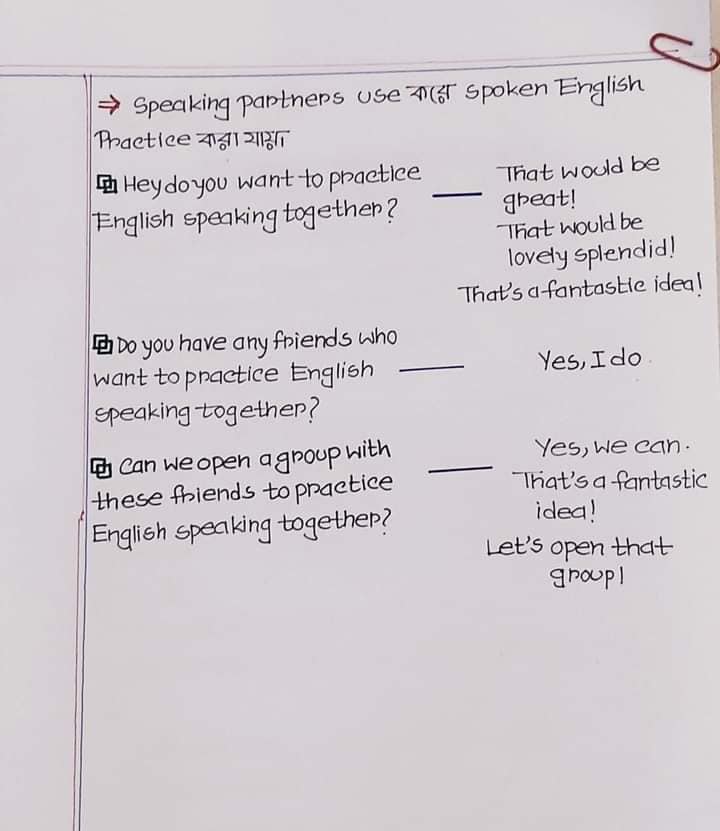 ⇒ Speaking partners use করে spoken English
Practice করা যায়
Hey do you want to practice
English speaking together?
— That would be
great!
That would be
lovely splendid!
That's a fantastic idea!
Do you have any friends who
want to practice English
speaking together?
— Yes, I do.
Can we open a group with
these friends to practice
English speaking together?
— Yes, we can.
That's a fantastic
idea!
Let's open that
group!